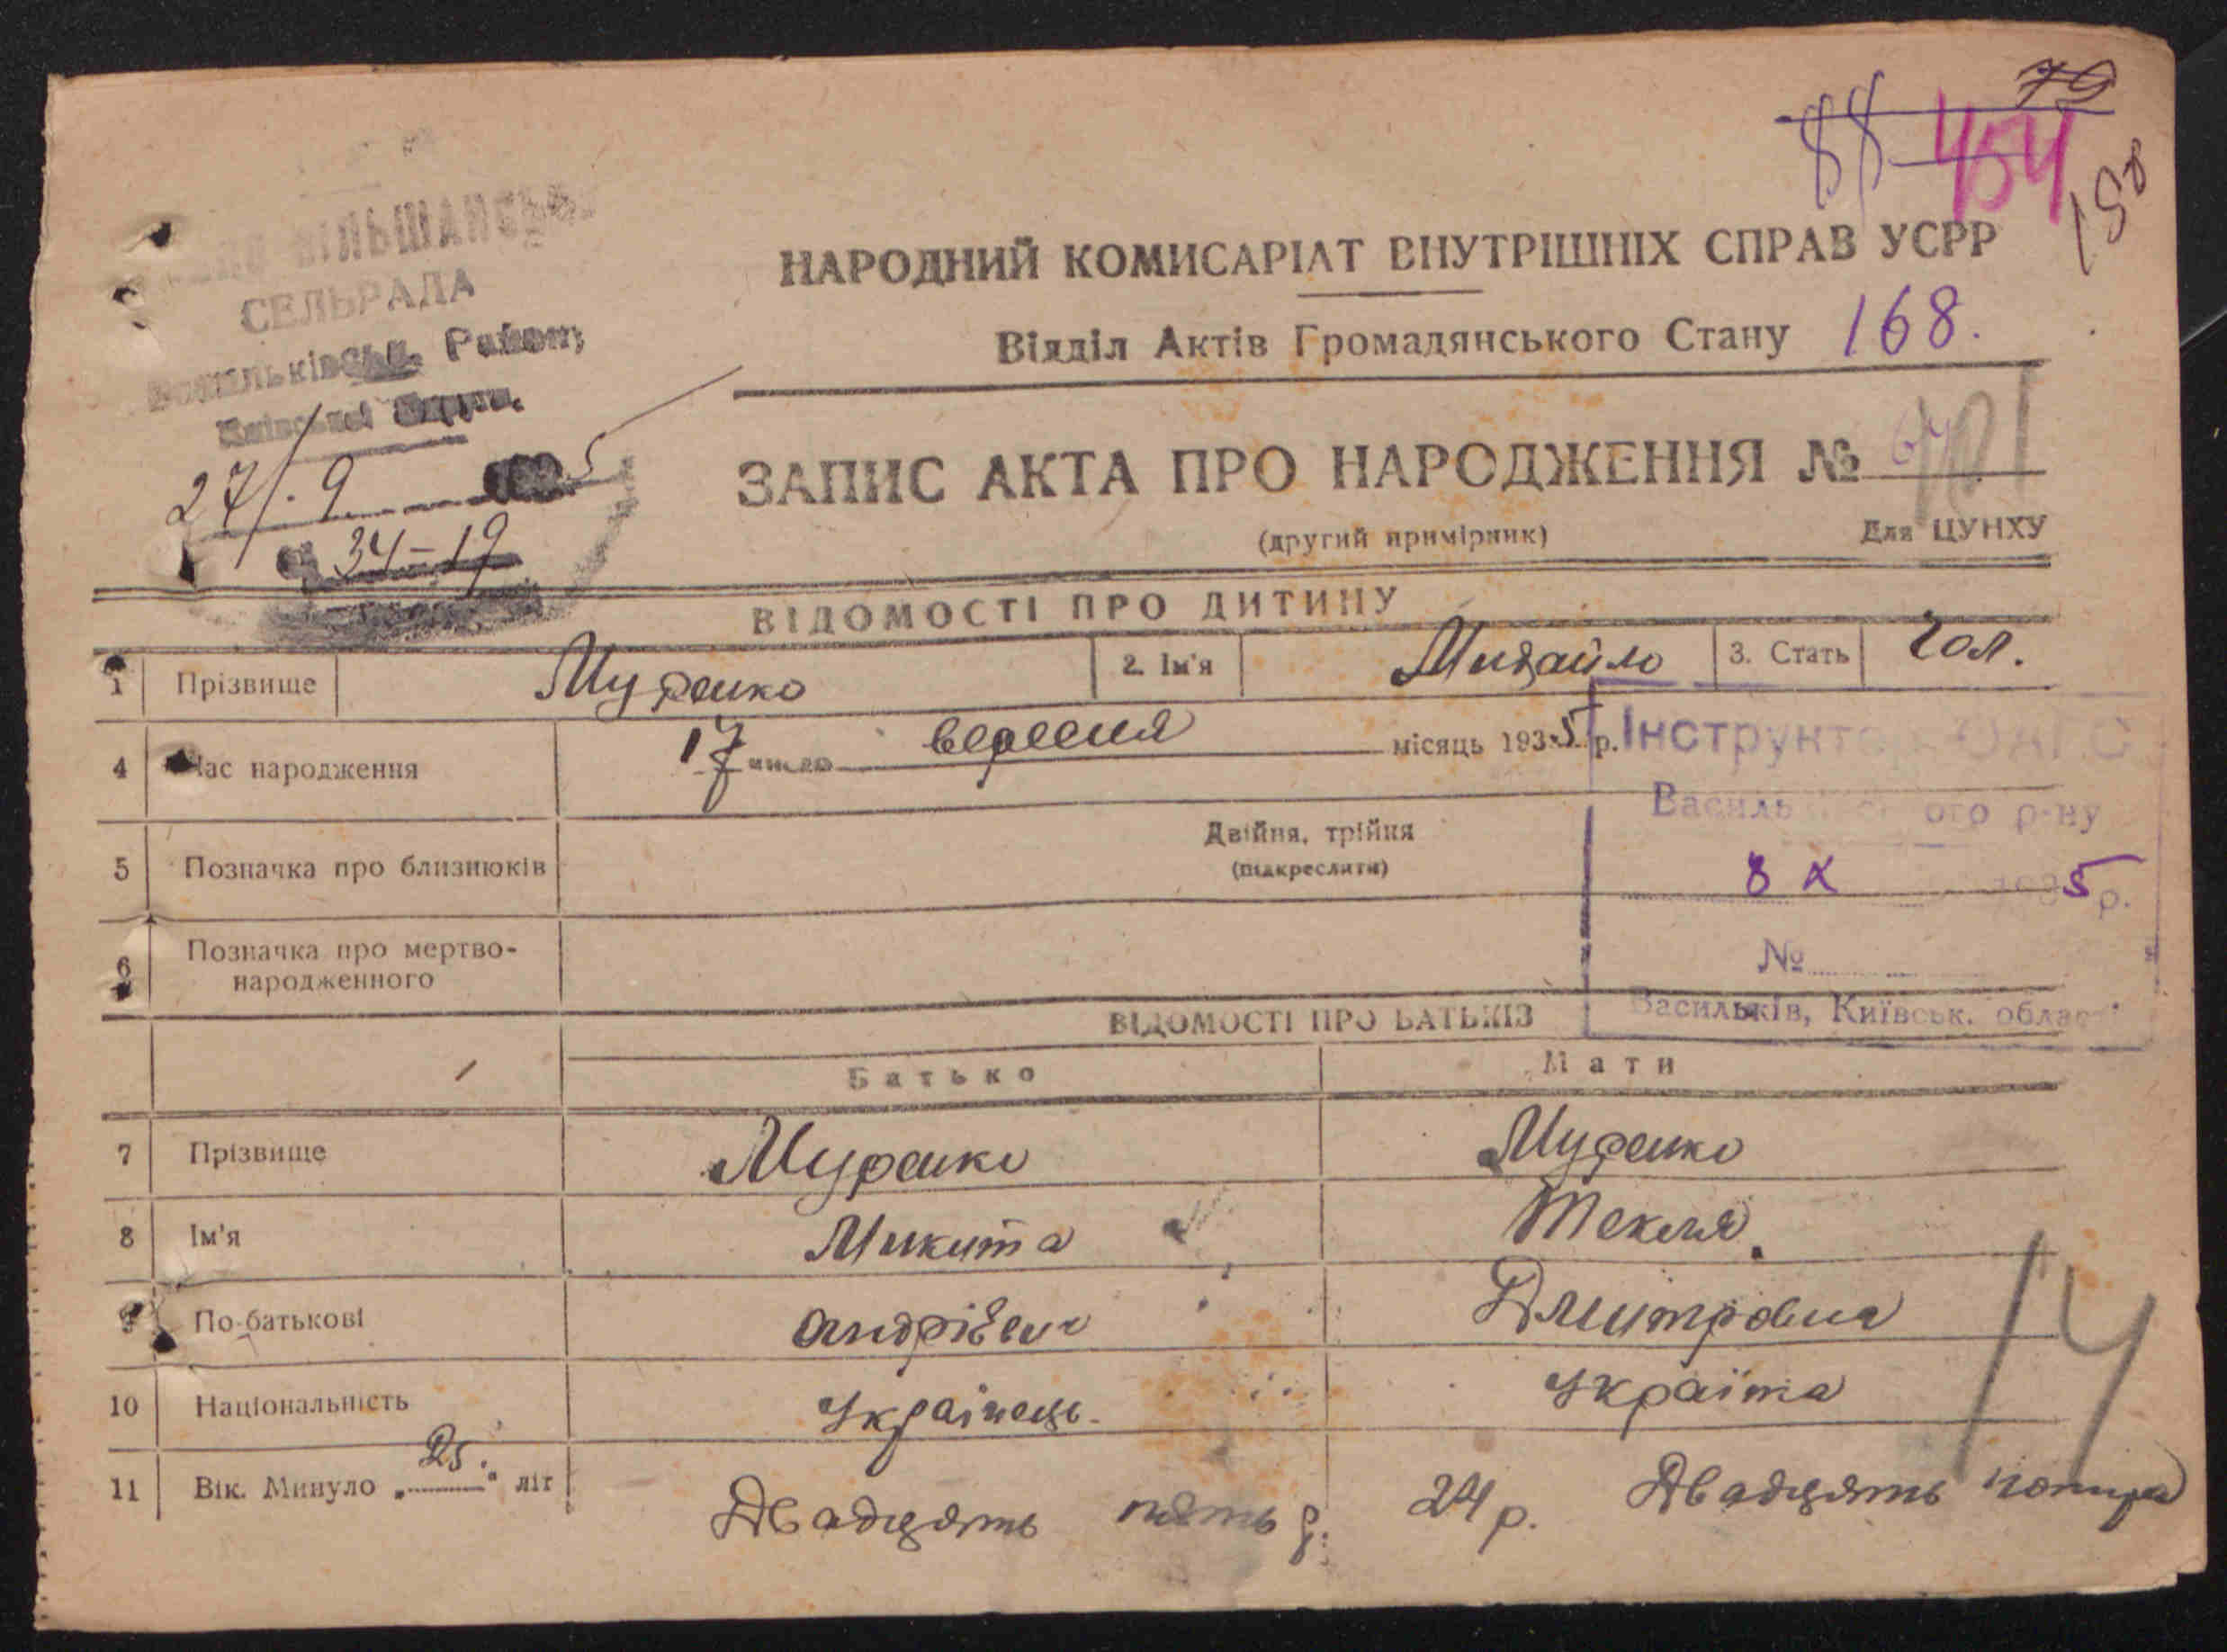 79
88 454
158
ВІЛЬШАНСЬКА
СЕЛЬРАДА
Васильківськ. Району
Київської
27/. 9 5
34-19
НАРОДНИЙ КОМИСАРІАТ ВНУТРІШНІХ СПРАВ УСРР
Відділ Актів Громадянського Стану 168.
ЗАПИС АКТА ПРО НАРОДЖЕННЯ № 64
(другий примірник) Для ЦУНХУ
ВІДОМОСТІ ПРО ДИТИНУ
1 Прізвище Муренко 2. Ім'я Михайло 3. Стать чол.
4 Час народження 17 число вересня місяць 1935 р.
Інструктор ОАГС
Васильківського р-ну
8 X 1935 р.
№
Васильків, Київськ. області
5 Позначка про близнюків Двійня, трійня
(підкреслити)
6 Позначка про мертво-
народженного
ВІДОМОСТІ ПРО БАТЬКІВ
Батько Мати
7 Прізвище Муренко Муренко
8 Ім'я Микита Текля.
9 По-батькові Андрієвич Дмитровна
10 Національність Українець Украінка
11 Вік. Минуло „25." літ Двадцять пять р. 24 р. Двадцять чотири
14